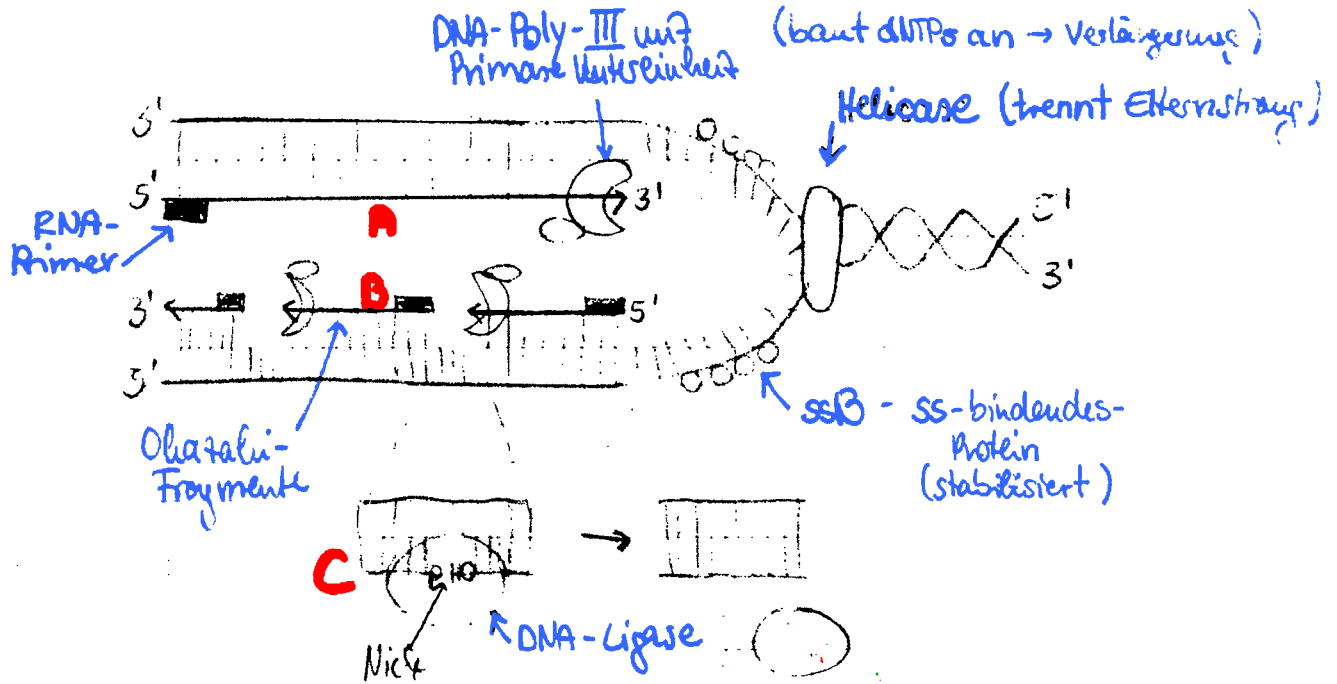 DNA-Poly-III mit
Primase Untereinheit
(baut dNTPs an → Verlängerung)
Helicase (trennt Elternstrang)
5'
5'
3'
RNA-
Primer
A
5'
3'
B
3'
5'
5'
Okazaki-
Fragmente
ssB - ss-bindendes-
Protein
(stabilisiert)
C
Nick
DNA-Ligase